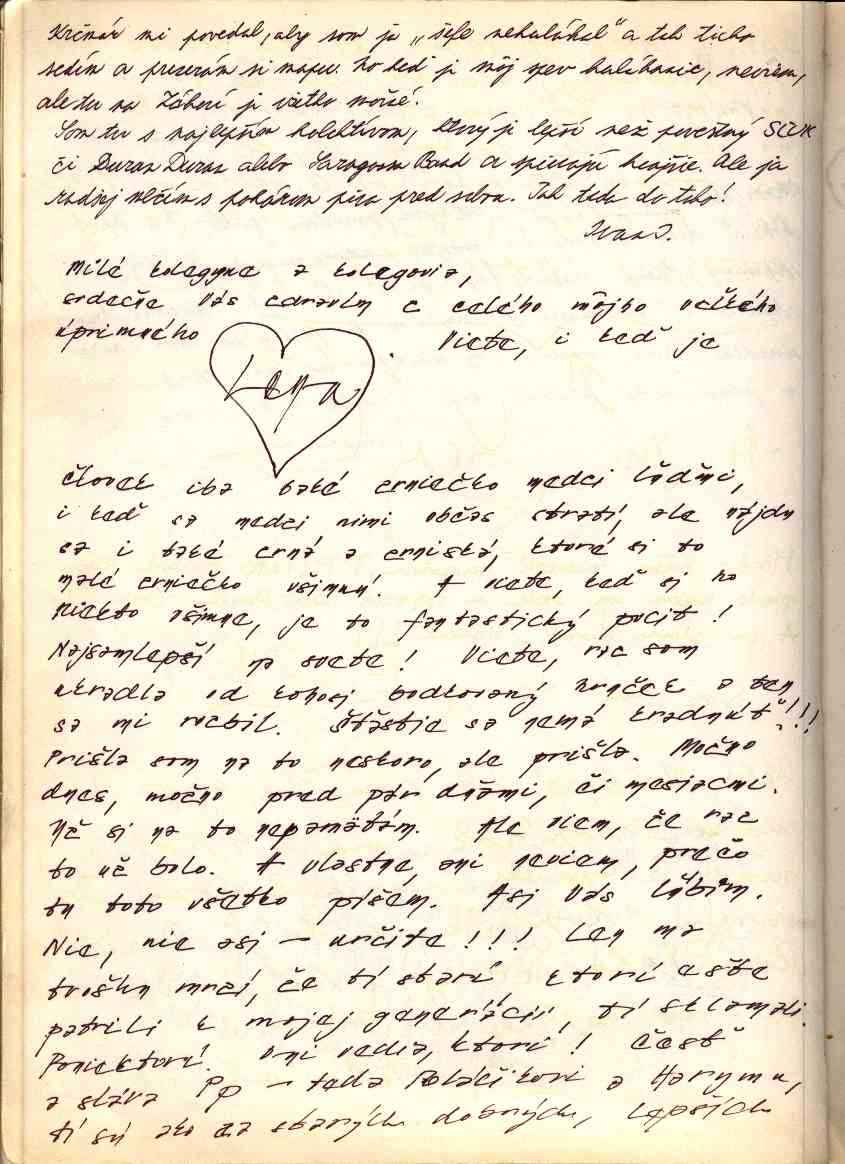 Krčmár mi povedal, aby som ja „šefe nehulákal" a tak ticho
sedím a prezerám si mapu. Lo keď je môj spev halibanie, neviem,
ale tu na Záhorí je všetko možné.
Som tu s najlepším kolektívom, ktorý je lepší než povestný SĽUK
či Duran Duran alebo Saragossa Band a spievajú krajšie. Ale ja
radšej mlčím s pohárom piva pred sebou. Tak teda do toho!
Ivan J.
Milé kolegyne a kolegovia,
srdečne Vás zdravím z celého môjho veľkého
úprimného
Viete, i keď je
Lena
človek iba také zrniečko medzi ľuďmi,
i keď sa medzi nimi občas stratí, ale nájdu
sa i také zrná a zrniská, ktoré si to
malé zrniečko všimnú. A viete, keď si ho
niekto všimne, je to fantastický pocit!
Najsamlepší na svete! Viete, raz som
ukradla od kohosi bodkovaný hrnček a ten
sa mi rozbil. Šťastie sa nemá kradnúť!!!
Prišla som na to neskoro, ale prišla. Možno
dnes, možno pred pár dňami, či mesiacmi.
Už si na to nepamätám. Ale viem, že raz
to už bolo. A vlastne, ani neviem, prečo
tu toto všetko píšem. Asi Vás ľúbim.
Nie, nie asi – určite!!! Len ma
trošku mrzí, že tí starí, ktorí ešte
patrili k mojej generácii, tí sklamali.
Poniektorí. Oni vedia, ktorí! Česť
a sláva Pp – teda Poláčikovi a Harymu,
tí sú ako za starých dobrých, lepších